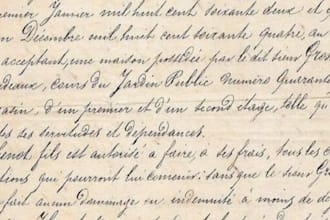 premier Janvier mil huit cent soixante deux et
un Décembre mil huit cent soixante quatre, au
acceptant, une maison possédée par le dit sieur Gros
deaux, cours du Jardin Public numéro quarante
asin, d'un premier et d'un second étage, telle qu
es ses servitudes et dépendances.
enot, fils est autorisé à faire, à ses frais, tous les c
tions qui pourront lui convenir; sans que le sieur Gros
fait aucun dommage ou indemnité à moins de d